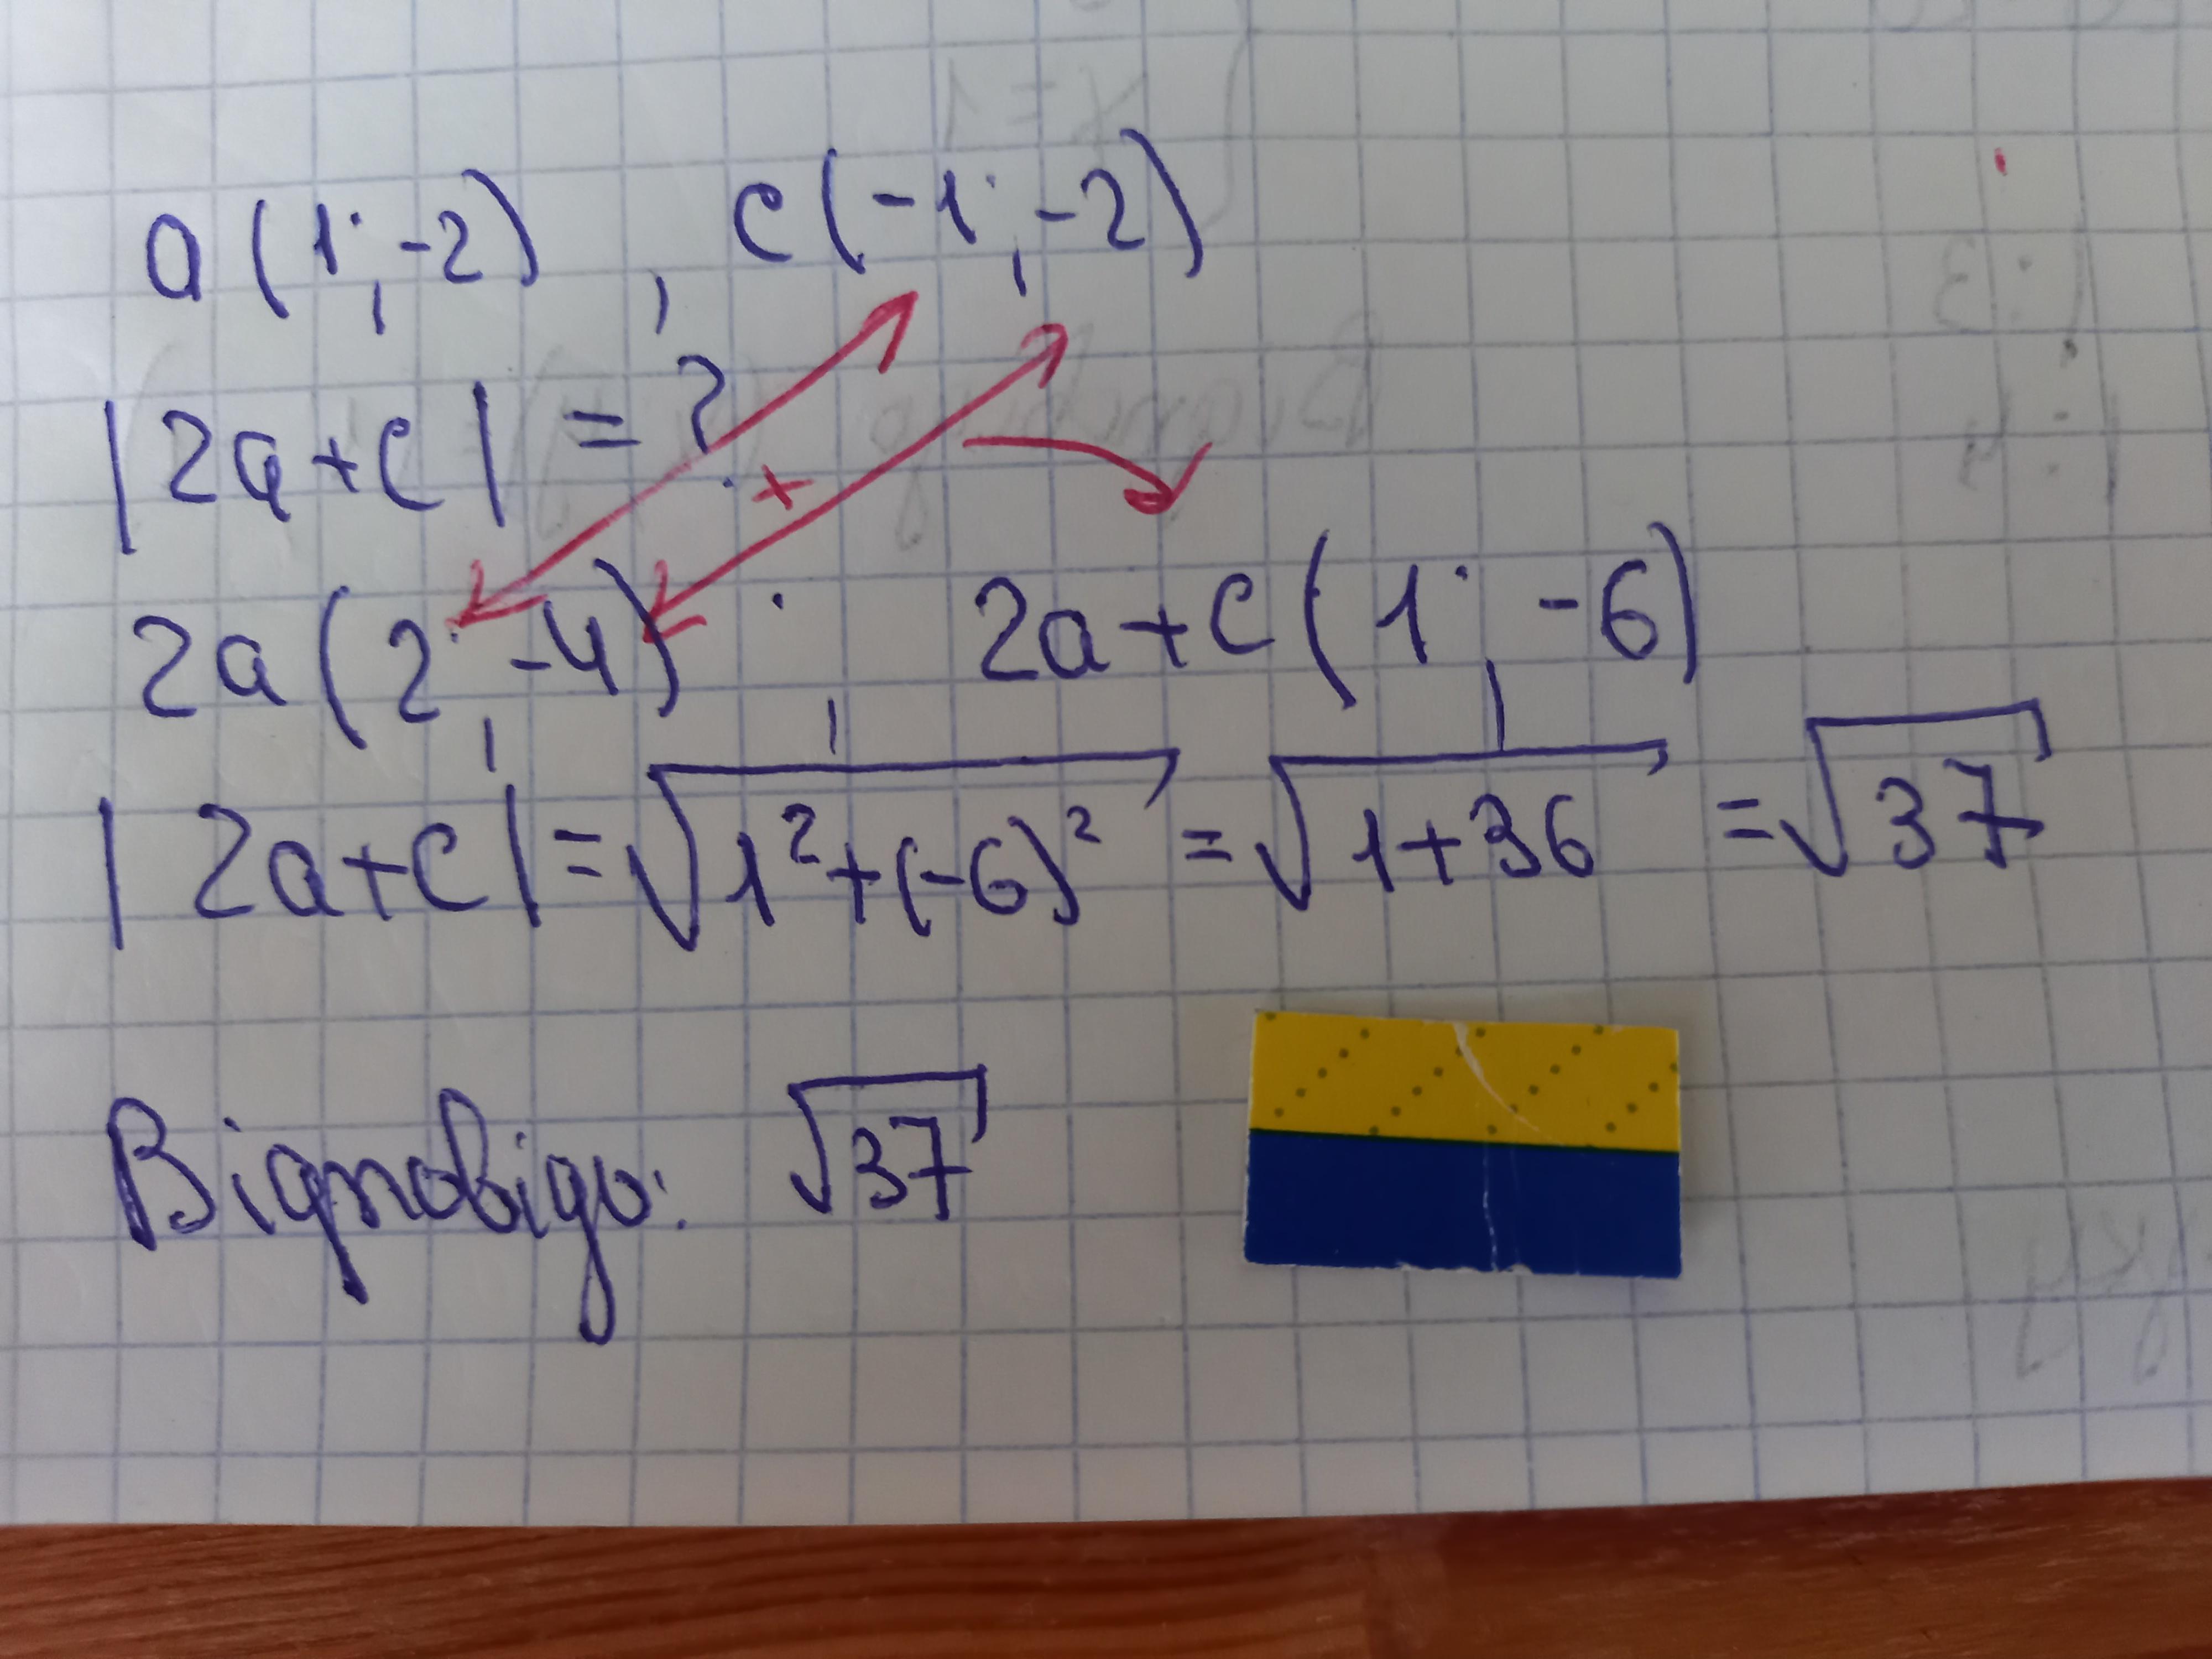 a (1 ; -2) , c (-1 ; -2)
|2a+c| = ?
2a (2 ; -4) ; 2a+c (1 ; -6)
|2a+c| = √(1²+(-6)²) = √(1+36) = √37
Відповідь: √37